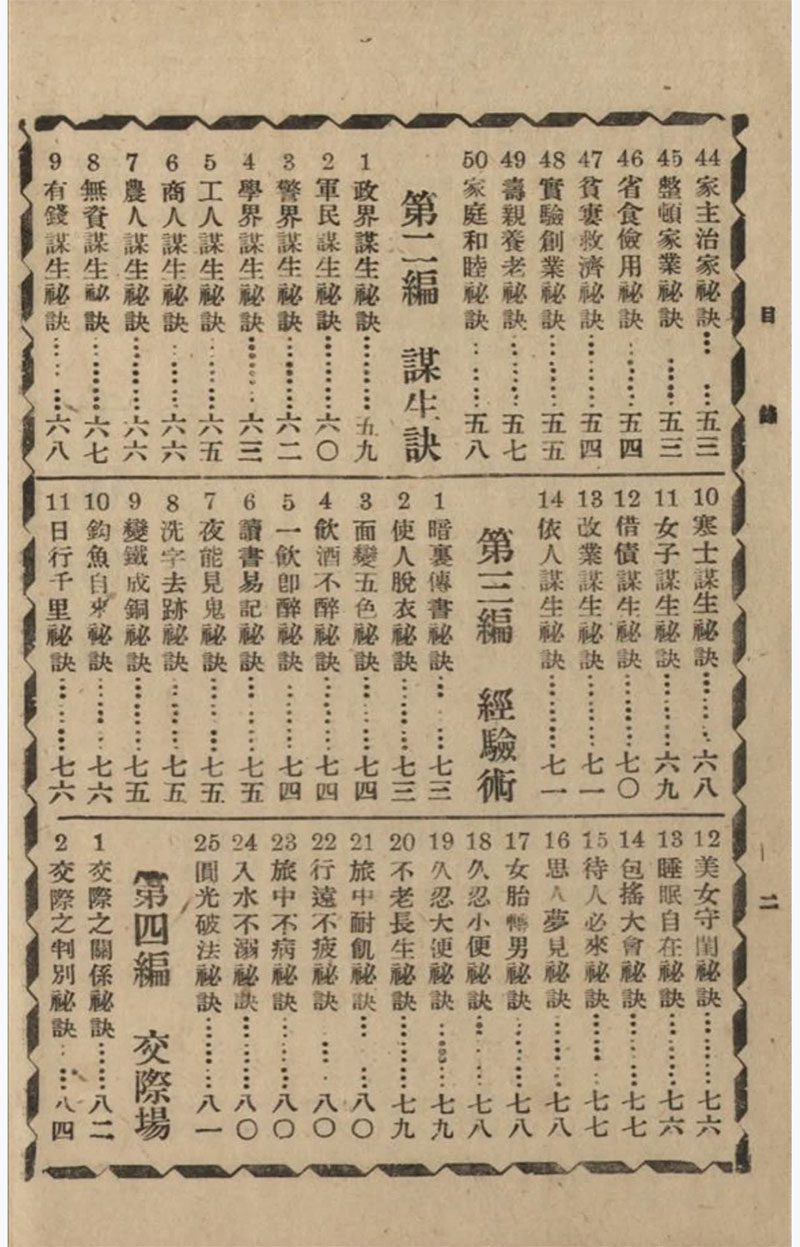 目錄
二
44 家主治家祕訣… …五三
45 整頓家業祕訣 ……五三
46 省食儉用祕訣………五四
47 貧寠救濟祕訣………五四
48 實驗創業祕訣………五五
49 壽親養老祕訣………五七
50 家庭和睦祕訣………五八
第二編 謀生訣
1 政界謀生祕訣………五九
2 軍民謀生祕訣………六〇
3 警界謀生祕訣………六二
4 學界謀生祕訣………六三
5 工人謀生祕訣………六五
6 商人謀生祕訣………六六
7 農人謀生祕訣………六六
8 無資謀生祕訣………六七
9 有錢謀生祕訣………六八
10 寒士謀生祕訣………六八
11 女子謀生祕訣………六九
12 借債謀生祕訣………七〇
13 改業謀生祕訣………七一
14 依人謀生祕訣………七一
第三編 經驗術
1 暗裏傳書祕訣………七三
2 使人脫衣祕訣………七三
3 面變五色祕訣………七四
4 飲酒不醉祕訣………七四
5 一飲卽醉祕訣………七四
6 讀書易記祕訣………七五
7 夜能見鬼祕訣………七五
8 洗字去跡祕訣………七五
9 變鐵成銅祕訣………七五
10 鈎魚自來祕訣………七六
11 日行千里祕訣………七六
12 美女守閨祕訣………七六
13 睡眠自在祕訣………七六
14 包搖大會祕訣………七七
15 待人必來祕訣………七七
16 思人夢見祕訣………七八
17 女胎轉男祕訣………七八
18 久忍小便祕訣………七八
19 久忍大便祕訣………七九
20 不老長生祕訣………七九
21 旅中耐飢祕訣………八〇
22 行遠不疲祕訣………八〇
23 旅中不病祕訣………八〇
24 入水不溺祕訣………八〇
25 圓光破法祕訣………八一
第四編 交際場
1 交際之關係祕訣………八二
2 交際之判別祕訣………八四